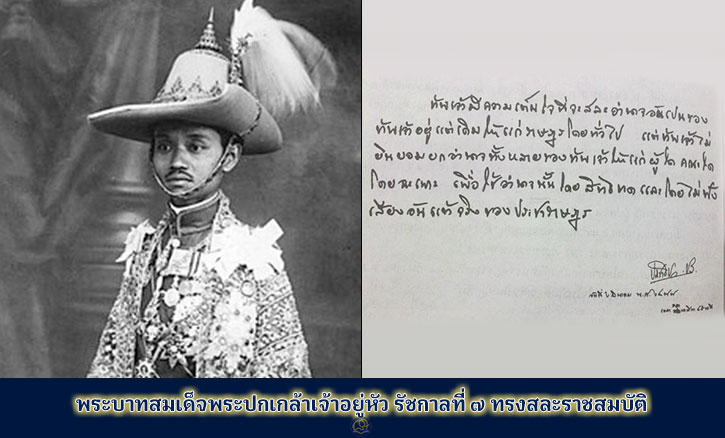 ข้าพเจ้ามีความเต็มใจที่จะสละอำนาจอันเป็นของ
ข้าพเจ้าอยู่แต่เดิมให้แก่ราษฎรโดยทั่วไป แต่ข้าพเจ้าไม่
ยินยอมยกอำนาจทั้งหลายของข้าพเจ้าให้แก่ผู้ใด คณะใด
โดยเฉพาะ เพื่อใช้อำนาจนั้นโดยสิทธิขาด และโดยไม่ฟัง
เสียงอันแท้จริงของประชาราษฎร
พระบาทสมเด็จพระปกเกล้าเจ้าอยู่หัว รัชกาลที่ ๗ ทรงสละราชสมบัติ